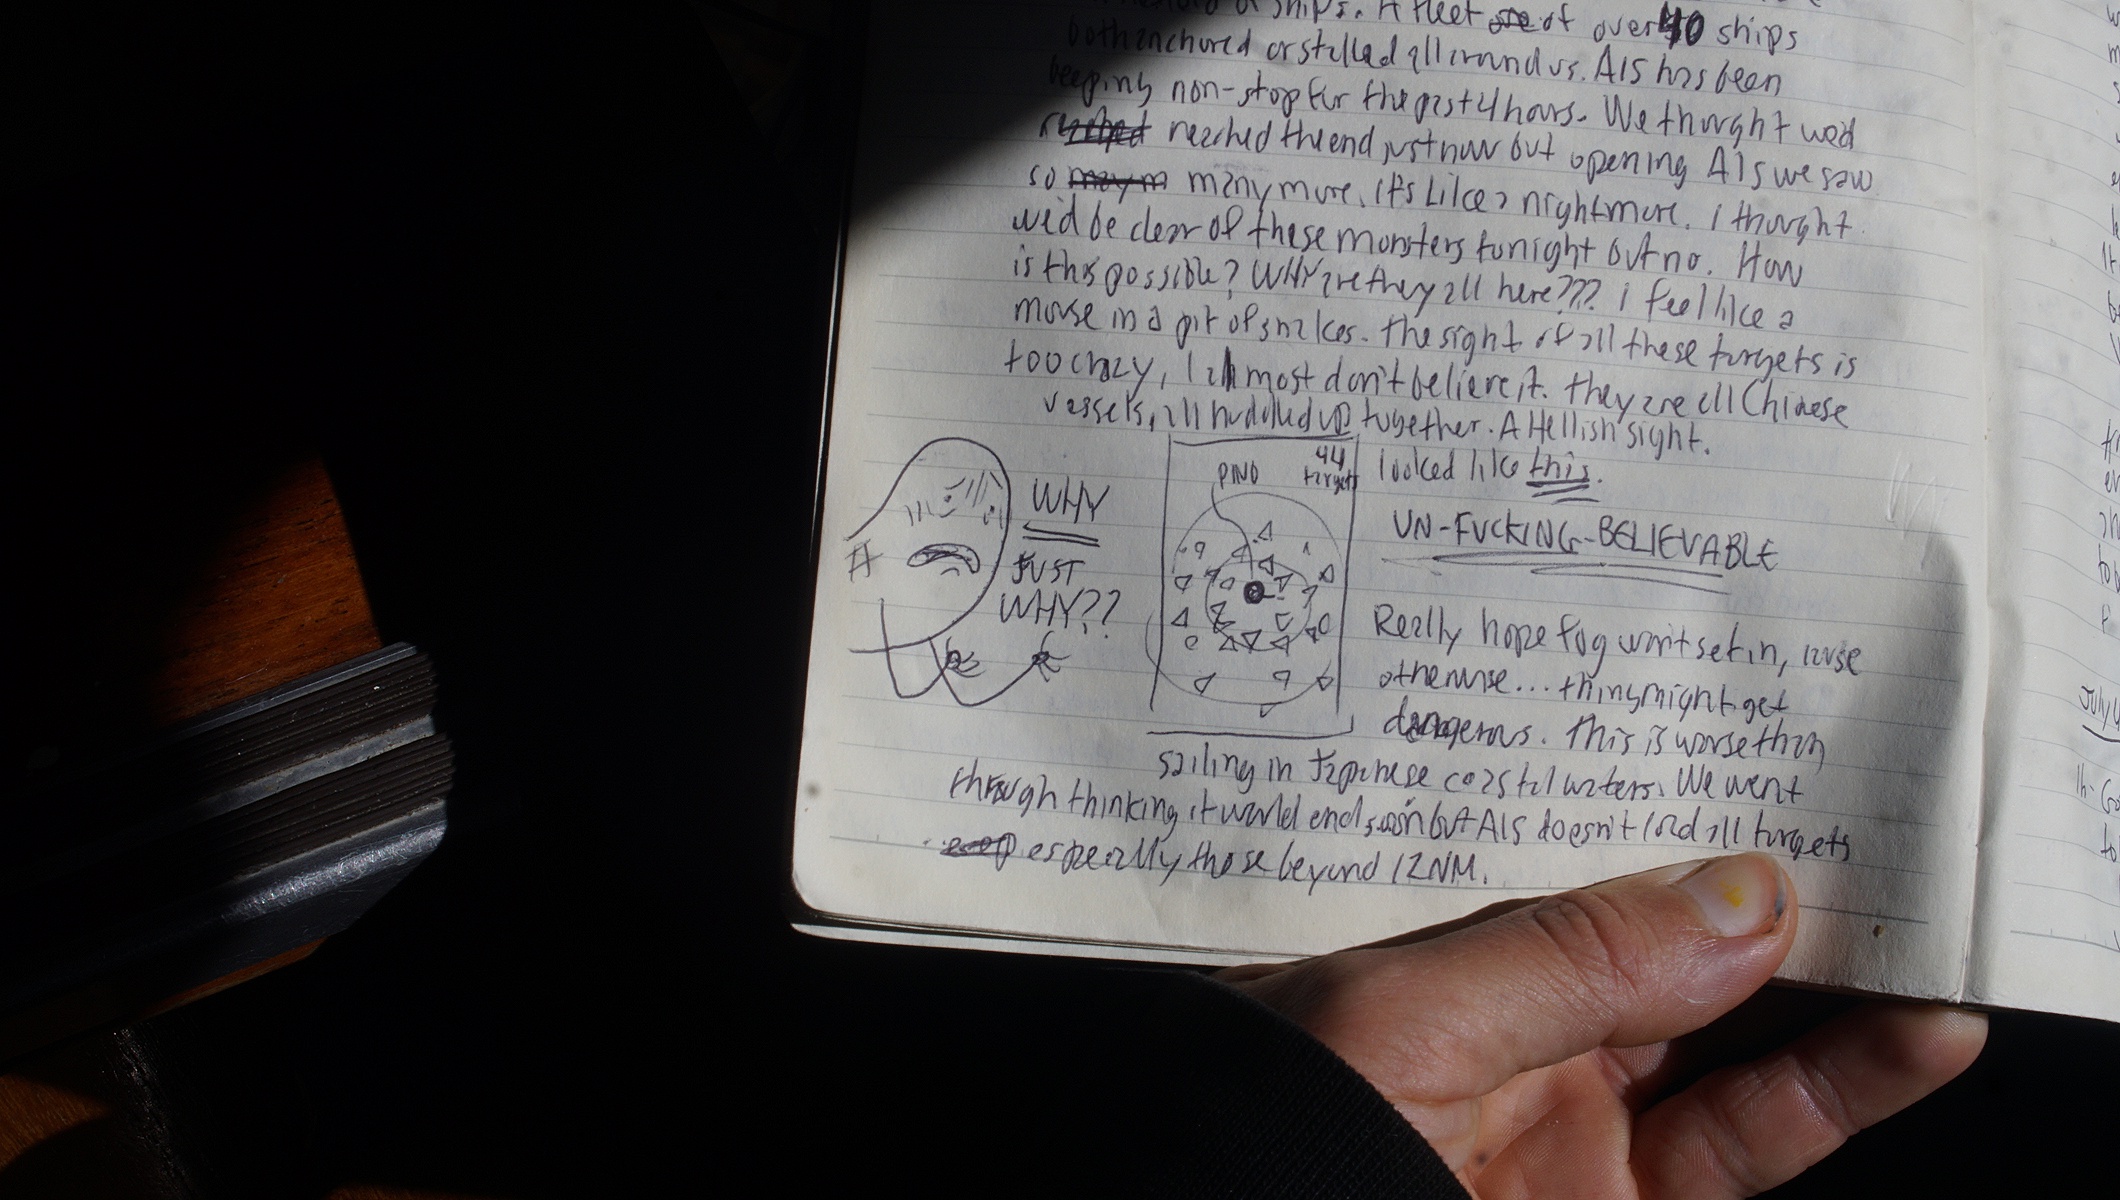 of ships. A fleet of over 40 ships
both anchored or stalled all around us. AIS has been
beeping non-stop for the past 4 hours. We thought we'd
reached the end just now but opening AIS we saw
so many more. it's Like a nightmare. I thought
we'd be clear of these monsters tonight but no. How
is this possible? WHY are they all here??? i feel like a
mouse in a pit of snakes. the sight of all these targets is
too crazy, I almost don't believe it. they are all Chinese
vessels, all huddled up together. A Hellish sight.
looked like this.
PINO
44
targets
WHY
JUST
WHY??
UN-FUCKING-BELIEVABLE
Really hope fog won't set in, cause
otherwise... things might get
dangerous. This is worse than
sailing in Japanese coastal waters. We went
through thinking it would end soon but AIS doesn't load all targets
especially those beyond 12NM.
July